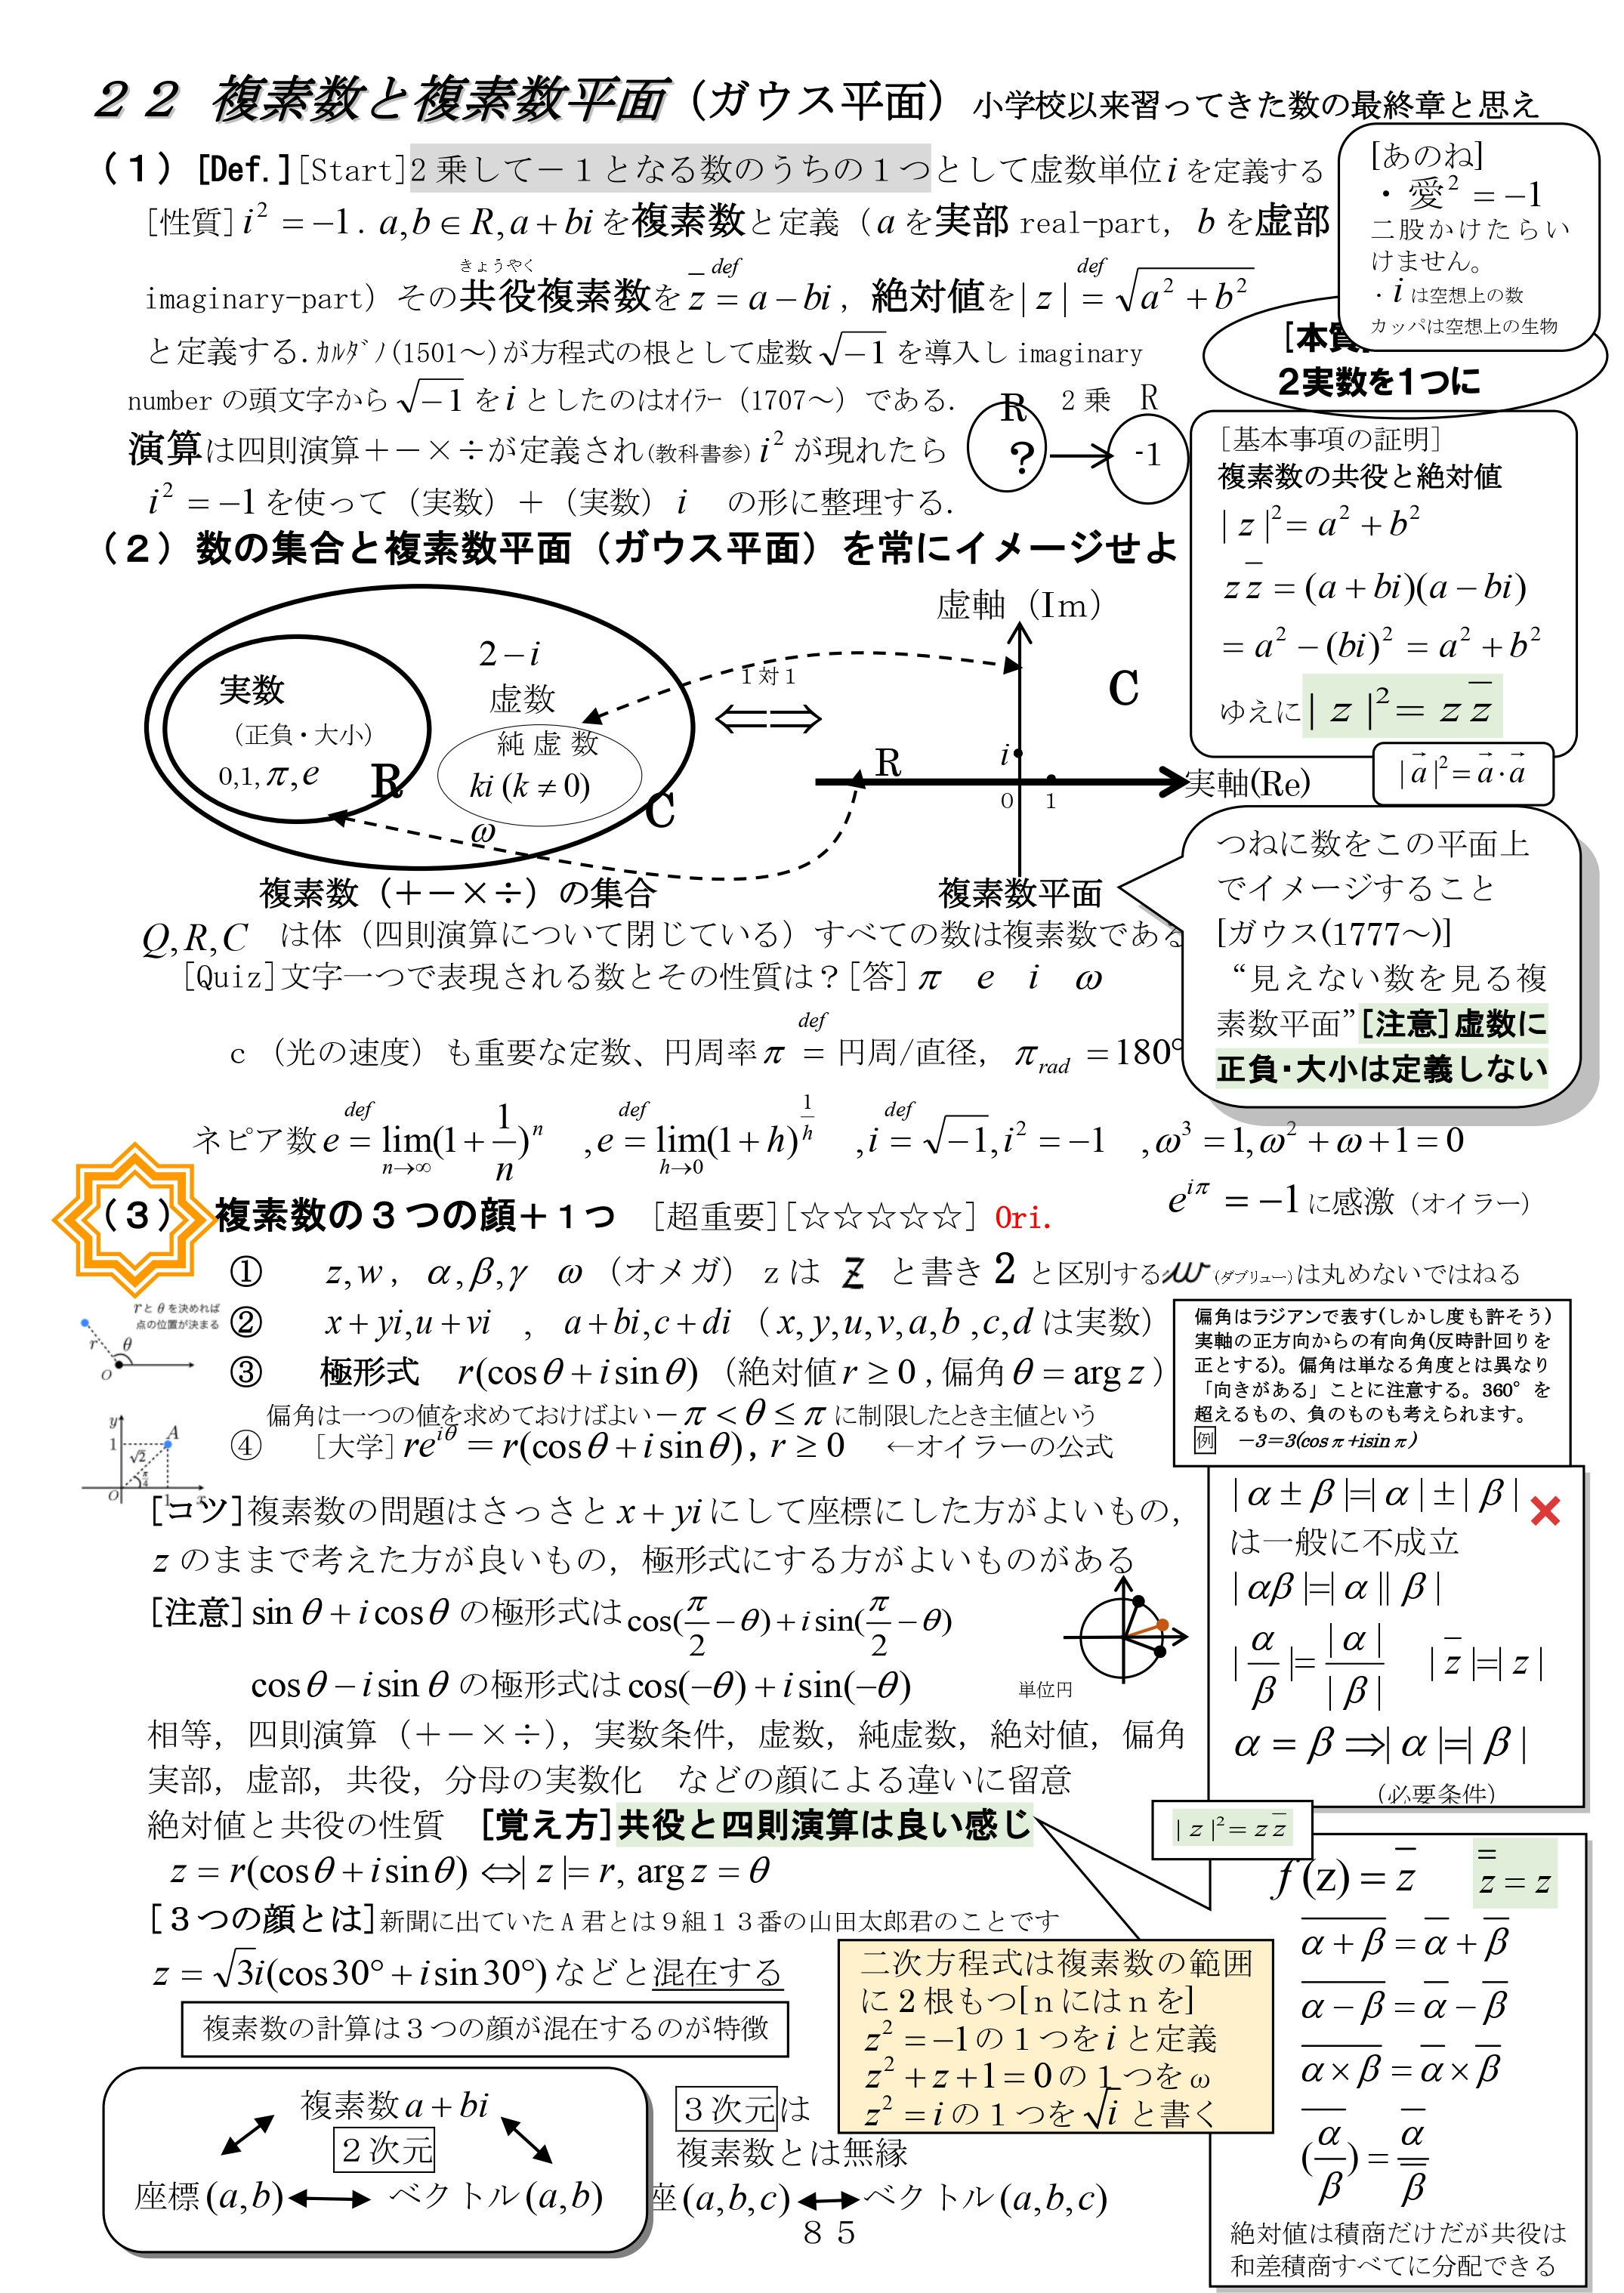 ２２ 複素数と複素数平面（ガウス平面）小学校以来習ってきた数の最終章と思え
（１）[Def.][Start]2 乗して－１となる数のうちの１つとして虚数単位 i を定義する
[性質] i² = −1. a,b ∈ R, a + bi を複素数と定義（a を実部 real-part, b を虚部
きょうやく
imaginary-part）その共役複素数を z̄ =(def) a − bi , 絶対値を | z | =(def) √(a² + b²)
と定義する. ｶﾙﾀﾞﾉ(1501～)が方程式の根として虚数 √−1 を導入し imaginary
number の頭文字から √−1 を i としたのはｵｲﾗｰ（1707～）である.
演算は四則演算＋－×÷が定義され(教科書参) i² が現れたら
i² = −1 を使って（実数）＋（実数）i の形に整理する.
R 2 乗 R
? -1
[あのね]
・ 愛² = −1
二股かけたらい
けません。
・ i は空想上の数
カッパは空想上の生物
[本質
2実数を1つに
［基本事項の証明］
複素数の共役と絶対値
| z |² = a² + b²
z z̄ = (a + bi)(a − bi)
= a² − (bi)² = a² + b²
ゆえに | z |² = z z̄
| a⃗ |² = a⃗ · a⃗
（２）数の集合と複素数平面（ガウス平面）を常にイメージせよ
実数
（正負・大小）
0,1, π, e R
2 − i
虚数
純 虚 数
ki (k ≠ 0)
ω
C
1 対 1
虚軸（Im）
C
R
i
0 1
実軸(Re)
複素数（＋－×÷）の集合
複素数平面
つねに数をこの平面上
でイメージすること
[ガウス(1777～)]
“見えない数を見る複
素数平面”[注意]虚数に
正負・大小は定義しない
Q, R, C は体（四則演算について閉じている）すべての数は複素数である
[Quiz]文字一つで表現される数とその性質は？[答] π e i ω
c （光の速度）も重要な定数、円周率 π =(def) 円周/直径, π rad = 180°
ネピア数 e =(def) lim(n→∞) (1 + 1/n)ⁿ , e =(def) lim(h→0) (1 + h)^(1/h) , i =(def) √−1, i² = −1 , ω³ = 1, ω² + ω + 1 = 0
e^(iπ) = −1 に感激（オイラー）
（３） 複素数の３つの顔＋１つ ［超重要］[☆☆☆☆☆] Ori.
① z, w , α, β, γ ω （オメガ） z は z と書き 2 と区別する w (ダブリュー)は丸めないではねる
r と θ を決めれば
点の位置が決まる
r θ
O
② x + yi, u + vi , a + bi, c + di （ x, y, u, v, a, b , c, d は実数）
③ 極形式 r(cosθ + i sinθ) （絶対値 r ≥ 0 , 偏角 θ = arg z ）
偏角は一つの値を求めておけばよい − π < θ ≤ π に制限したとき主値という
④ [大学] re^(iθ) = r(cosθ + i sinθ), r ≥ 0 ←オイラーの公式
y
1 A
√2
π/4
O 1 x
偏角はラジアンで表す(しかし度も許そう)
実軸の正方向からの有向角(反時計回りを
正とする)。偏角は単なる角度とは異なり
「向きがある」ことに注意する。360° を
超えるもの、負のものも考えられます。
例 −3=3(cos π +isin π )
[コツ]複素数の問題はさっさと x + yi にして座標にした方がよいもの,
z のままで考えた方が良いもの, 極形式にする方がよいものがある
[注意] sin θ + i cosθ の極形式は cos(π/2 − θ) + i sin(π/2 − θ)
cosθ − i sin θ の極形式は cos(−θ) + i sin(−θ)
単位円
| α ± β |=| α | ± | β | ❌
は一般に不成立
| αβ |=| α || β |
| α/β |= | α | / | β | | z̄ |=| z |
α = β ⇒| α |=| β |
（必要条件）
相等, 四則演算（＋－×÷）, 実数条件, 虚数, 純虚数, 絶対値, 偏角
実部, 虚部, 共役, 分母の実数化 などの顔による違いに留意
絶対値と共役の性質 [覚え方]共役と四則演算は良い感じ
| z |² = z z̄
z = r(cosθ + i sinθ) ⇔| z |= r, arg z = θ
[３つの顔とは]新聞に出ていたＡ君とは９組１３番の山田太郎君のことです
z = √3i(cos30° + i sin30°) などと混在する
複素数の計算は３つの顔が混在するのが特徴
二次方程式は複素数の範囲
に２根もつ[ｎにはｎを]
z² = −1 の１つを i と定義
z² + z + 1 = 0 の１つを ω
z² = i の１つを √i と書く
f(z) = z̄ z̿ = z
\overline{α + β} = ᾱ + β̄
\overline{α − β} = ᾱ − β̄
\overline{α × β} = ᾱ × β̄
\overline{(α/β)} = ᾱ/β̄
絶対値は積商だけだが共役は
和差積商すべてに分配できる
複素数 a + bi
２次元
座標 (a,b) ベクトル (a,b)
３次元は
複素数とは無縁
座 (a,b,c) ベクトル (a,b,c)
８５